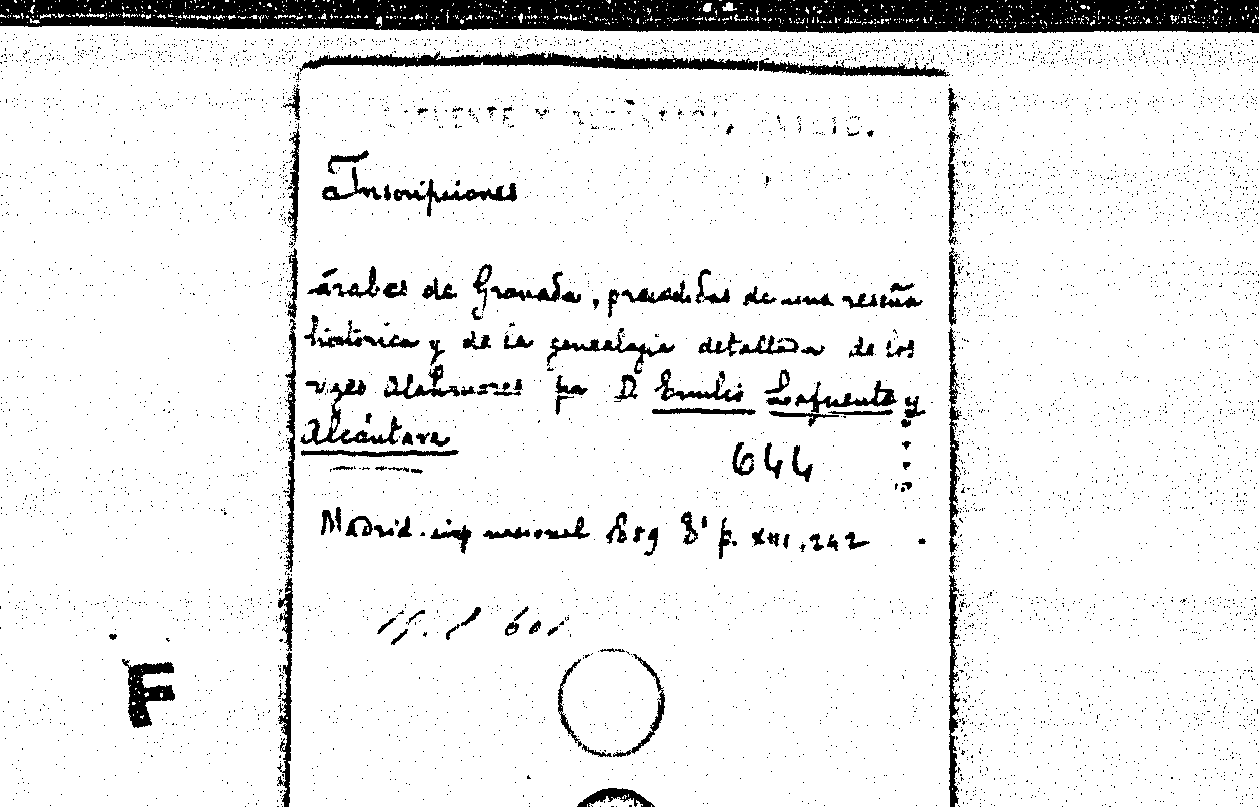 Inscripciones
árabes de Granada, precedidas de una reseña
histórica y de la genealogia detallada de los
reyes Alahmares por D. Emilio Lafuente y
Alcántara
644
Madrid. imp nacional 1859 8º p. XIII, 242
601
F